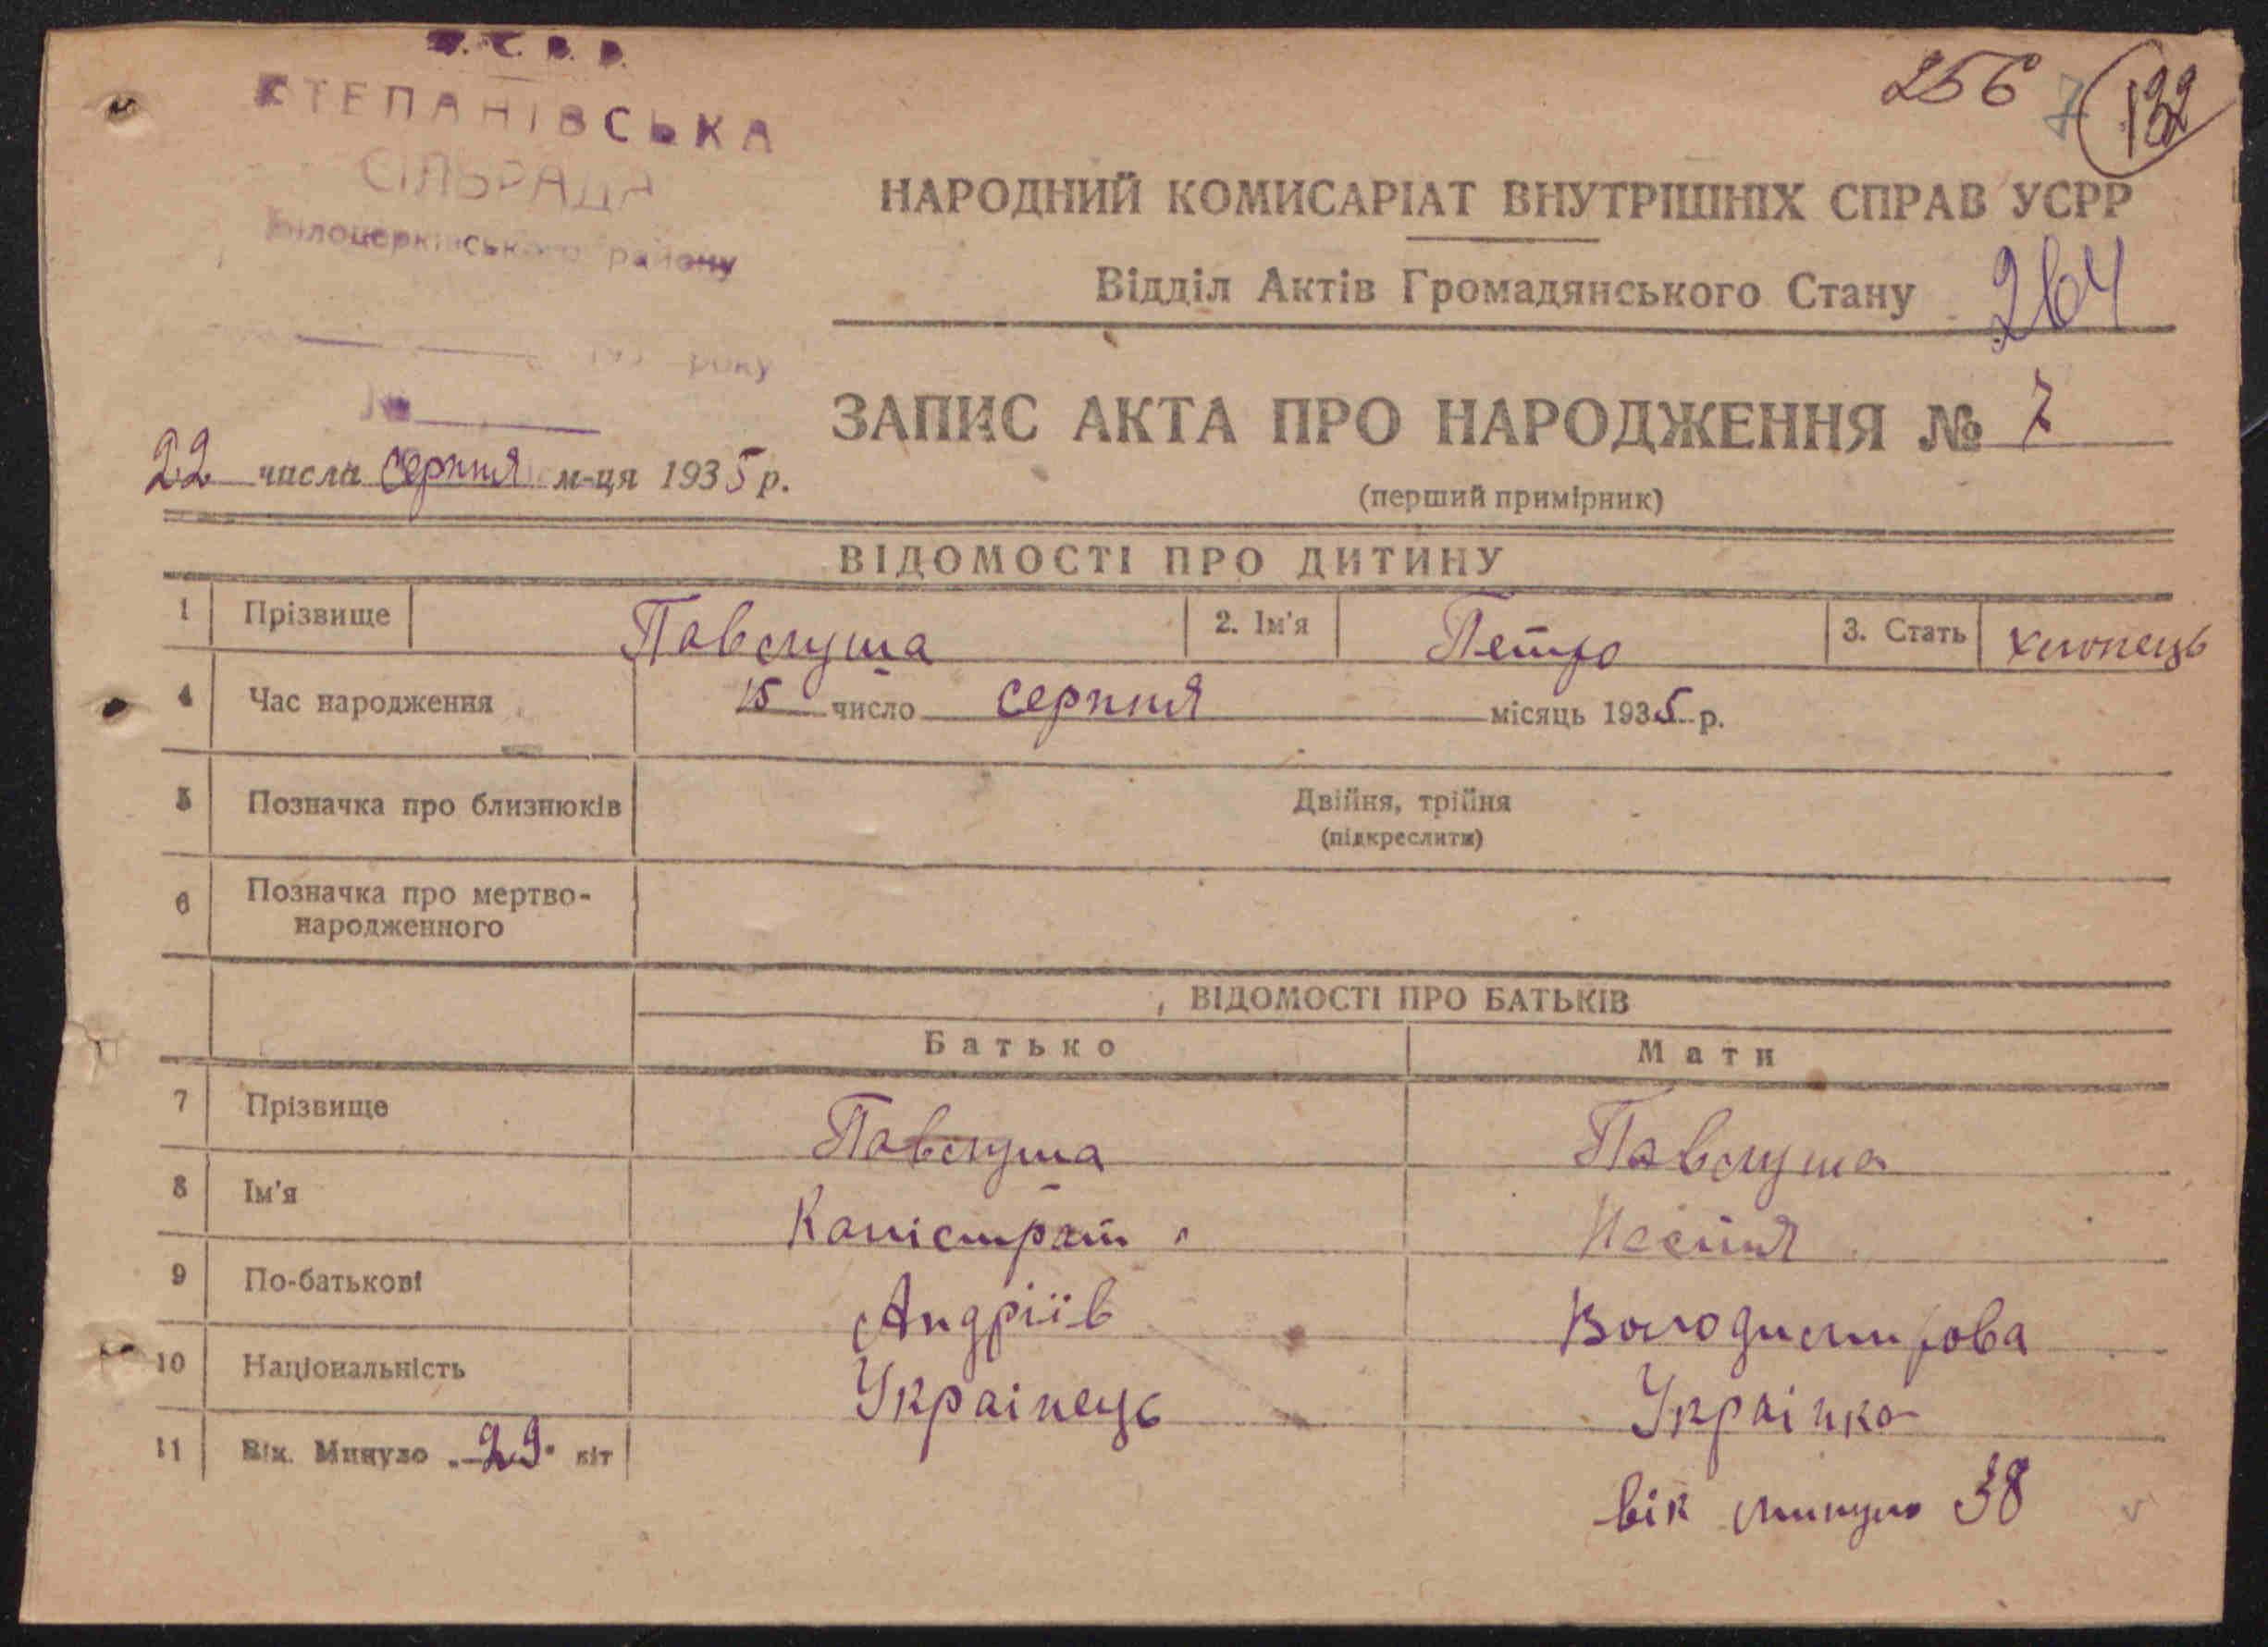 У.С.Р.Р.
СТЕПАНІВСЬКА
СІЛЬРАДА
Білоцерківського району
193 року
№
256 7 132
НАРОДНИЙ КОМИСАРІАТ ВНУТРІШНІХ СПРАВ УСРР
Відділ Актів Громадянського Стану 264
ЗАПИС АКТА ПРО НАРОДЖЕННЯ № 7
22 числа серпня м-ця 1935 р.
(перший примірник)
ВІДОМОСТІ ПРО ДИТИНУ
1 Прізвище Павлуша 2. Ім'я Петро 3. Стать хлопець
4 Час народження 15 число серпня місяць 1935 р.
5 Позначка про близнюків Двійня, трійня
(підкреслити)
6 Позначка про мертво-
народженного
ВІДОМОСТІ ПРО БАТЬКІВ
Батько Мати
7 Прізвище Павлуша Павлуша
8 Ім'я Каністрат
9 По-батькові Андріїв Володимирова
10 Національність Українець Українка
11 Вік. Минуло „29" літ
вік минуло 38